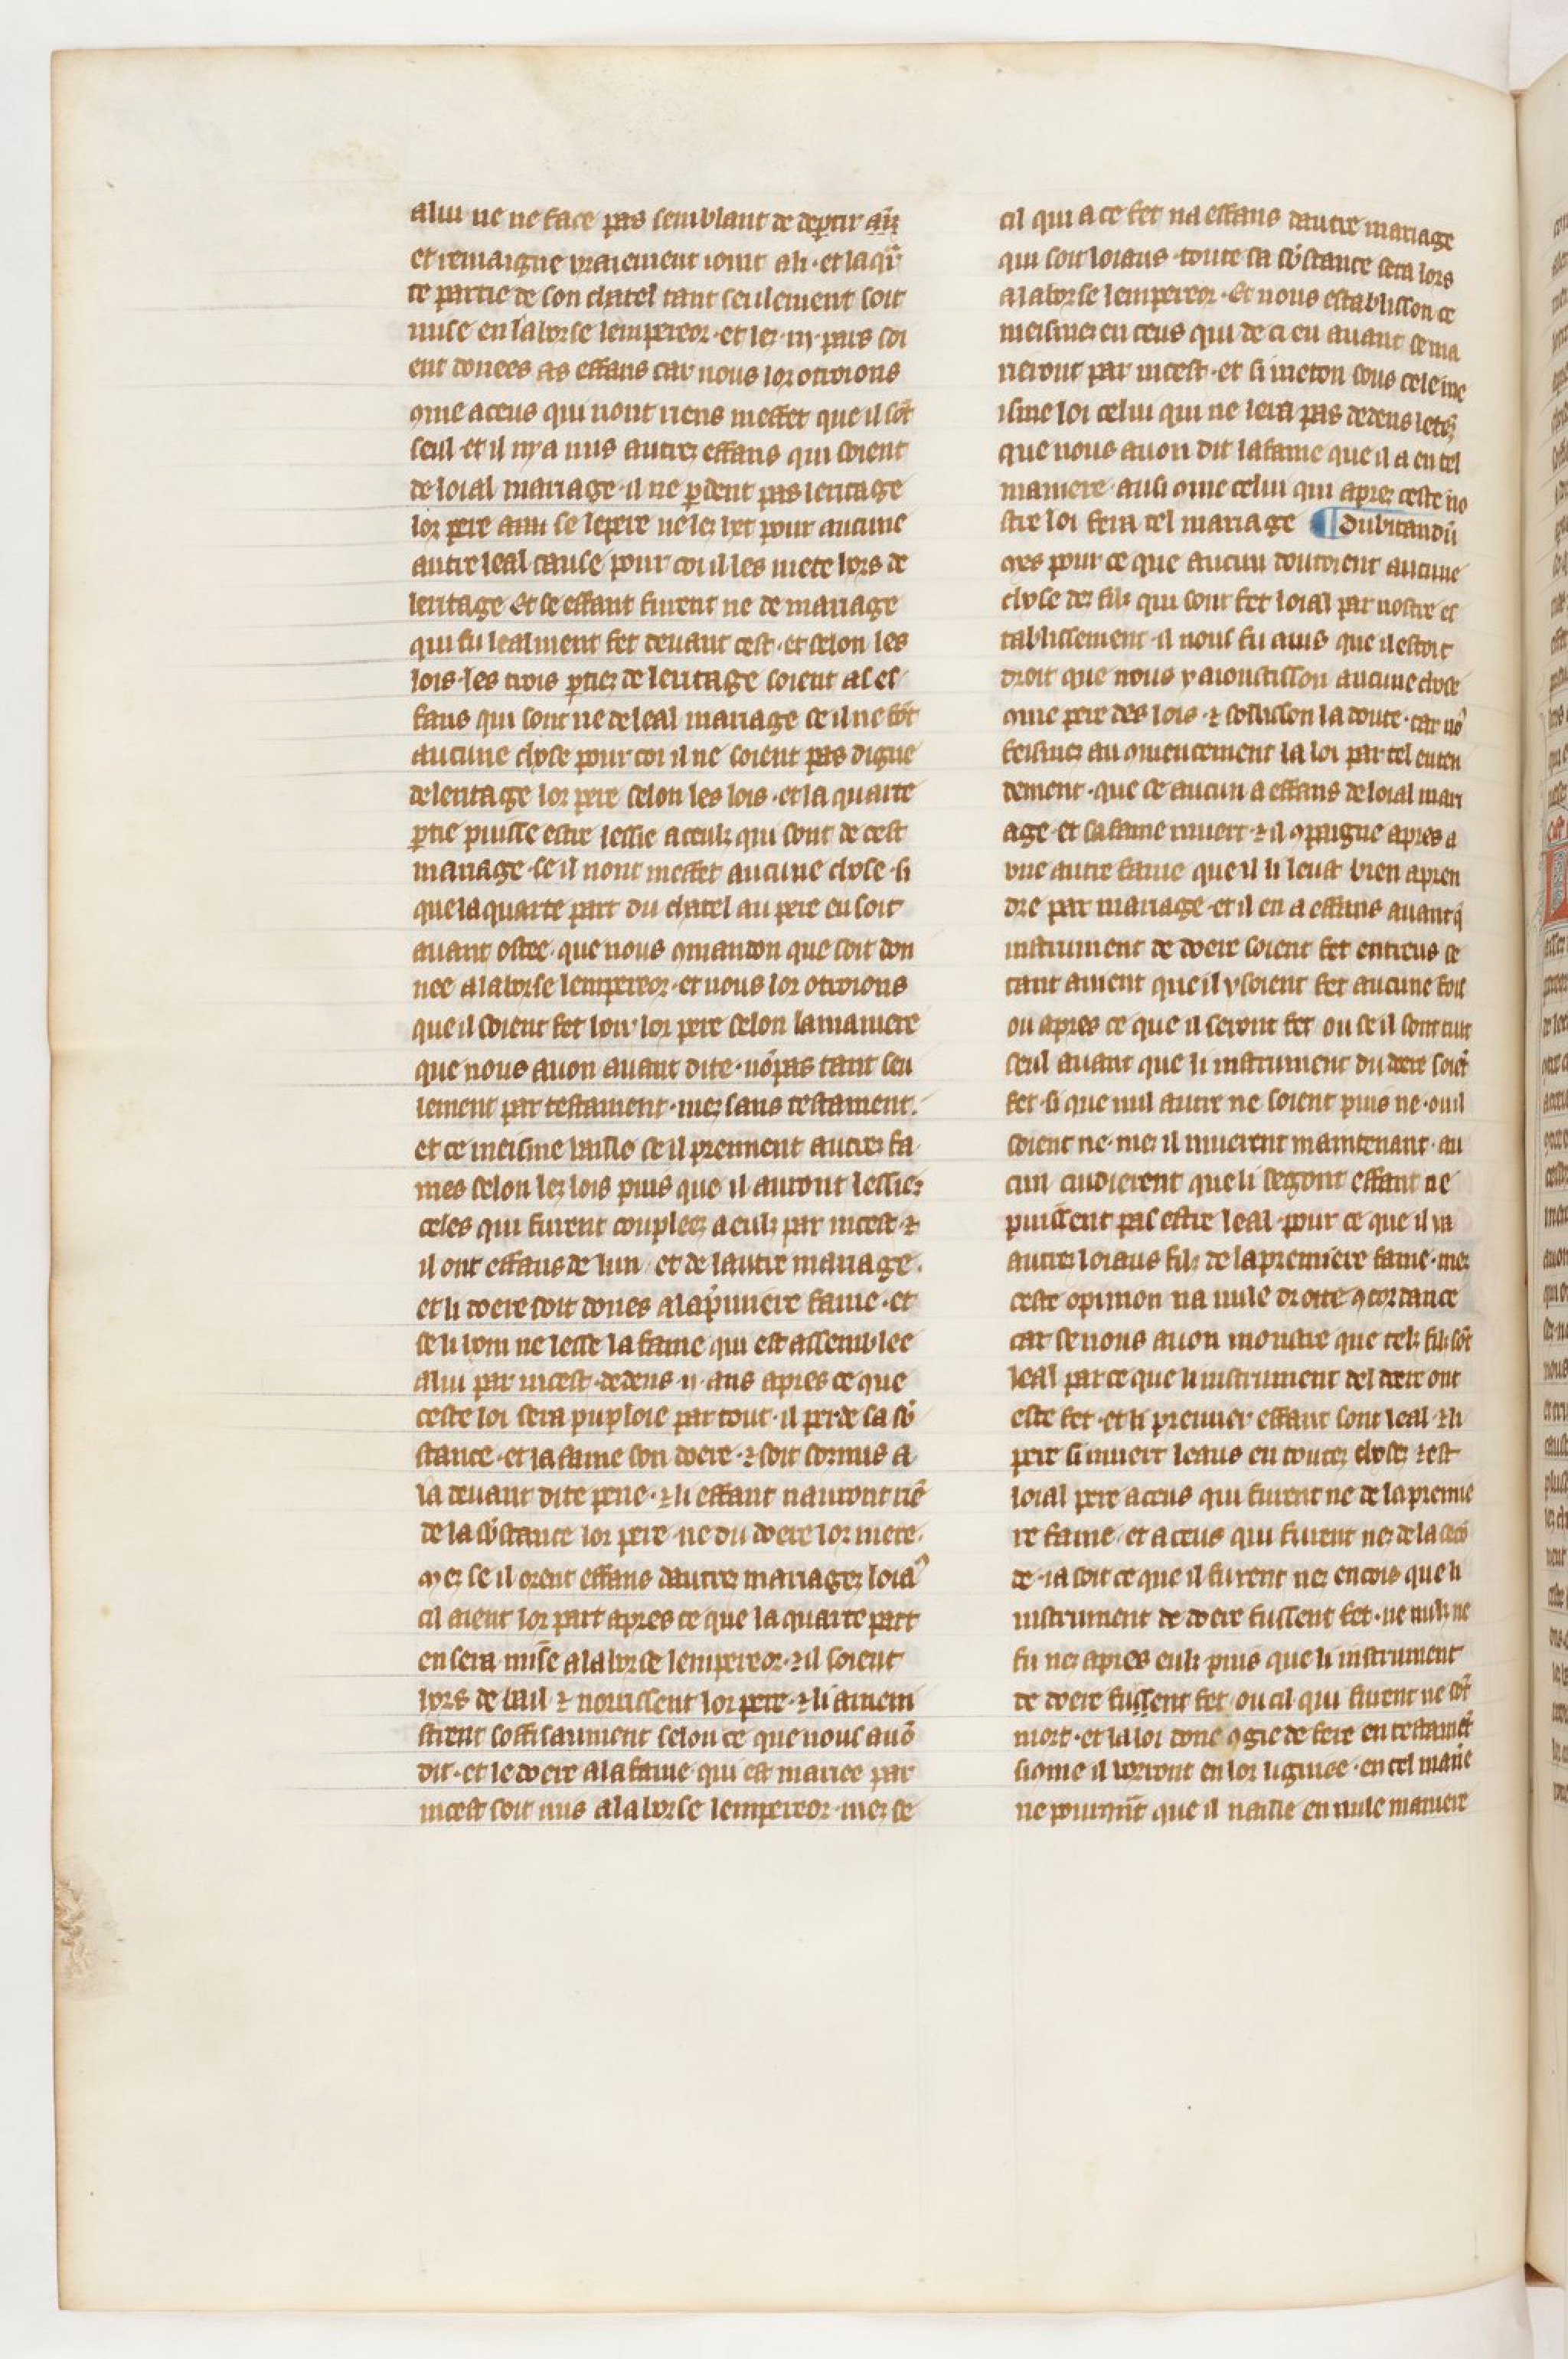 a lui ne ne face pas semblant de deptir aus
et remaigne vraiement ioint a li · et la qr̃
te partie de son chatel tant seulement soit
mise en la borse lempereor · et les · iij · pars soi
ent donees as effans car nous lor otroions
9me a ceus qui nont riens meffet que il sõt
seul · et il ni a nus autrez effans qui soient
de loial mariage · il ne pdent pas leritage
lor pere se le pere ne lez het pour aucune
autre leal cause pour coi il les mete hors de
leritage Et se effant furent ne de mariage
qui fu lealment fet devant cest · et selon les
lois · les trois ptiez de leritage soient as ef
fans qui sont ne de leal mariage se il ne fõt
aucune chose pour coi il ne soient pas digne
de leritage lor pere selon les lois · et la quarte
ptie puisse estre lessie a ceulz qui sont de cest
mariage · se il nont meffet aucune chose · si
que la quarte part du chatel au pere en soit
avant ostee · que nous 9mandon que soit don
nee a la borse lempereor · et nous lor otroions
que il soient fet hoir lor pere selon la maniere
que nous avon avant dite · nõ pas tant seu
lement par testament · mez sans testament ·
et ce meisme vaille se il prennent autrez fa
mes selon lez lois puis que il auront lessiez
celes qui furent coupleez a eulz par incest · ⁊
il ont effans de lun · et de lautre mariage ·
et li doere soit dones a la p̃miere fame · et
se li hom ne lesse la fame qui est assemblee
a lui par incest · dedens · ij · ans apres ce que
ceste loi sera pupploie par tout · il perde sa sub
stance · et la fame son doere · ⁊ soit sormis a
la devant dite pene · ⁊ li effant nauront riẽ
de la substance lor pere · ne du doere lor mere ·
Mez se il orent effans dautrez mariagez loia9
cil aient lor part apres ce que la quarte part
en sera mise a la borse lempereor · ⁊ il soient
hors de bail ⁊ norrissent lor pere · ⁊ li amem
strent soffisaument selon ce que nous avõ
dit · et le doere a la fame qui est mariee par
incest soit mis a la borse lempereor · mez se
cil qui a ce fet na effans dautre mariage
qui soit loiaus · toute sa substance sera lors
a la borse lempereor · Et nous establisson ce
meismez en ceus qui de ci en avant se ma
rieront par incest · et si meton sous cele me
isme loi celui qui ne lera pas dedens le tens
que nous avon dit la fame que il a en tel
maniere · ausi 9me celui qui aprez ceste no
stre loi fera tel mariage ¶ Dubitandũ
Mes pour ce que aucun doutoient aucune
chose dez filz qui sont fet loial par nostre es
tablissement · il nous fu avis que il estoit
droit que nous y aioustisson aucune chose
9me pere des lois · ⁊ sollisson la doute · car no9
feismez au 9mencement la loi par tel enten
dement · que se aucun a effans de loial mari
age · et sa fame muert · ⁊ il 9paigne apres a
une autre fame que il li leust bien apren
dre par mariage · et il en a effans avant q̃
instrument de doere soient fet entreus se
tant avient que il y soient fet aucune foiz
ou apres ce que il seront fet · ou se il sont tuit
seul avant que li instrument du doere soiẽt
fet · si que nul autre ne soient puis ne · ou il
soient ne · mez il muerent maintenant · au
cun cuidierent que li segont effant ne
puissent pas estre leal · pour ce que il i a
autrez loiaus filz de la premiere fame · mez
ceste opinion na nule droite 9cordance
car se nous avon moustre que telz filz sõt
leal par ce que li instrument del doere ont
este fet · et li premier effant sont leal · ⁊ li
pere si muert leaus en toutez chosez ⁊ est
loial pere a ceus qui furent ne de la premie
re fame · et a ceus qui furent nez de la secõ
de · ia soit ce que il furent nez encois que li
instrument de doere fussent fet · ne nulz ne
fu nez apres eulz puis que li instrument
de doere fussent fet · ou cil qui furent ne sõt
mort · et la loi done 9gie de fere en testamẽt
si 9me il vorront en lor lignie · en tel maie
ne pourq̃nt que il naille en nule maniere